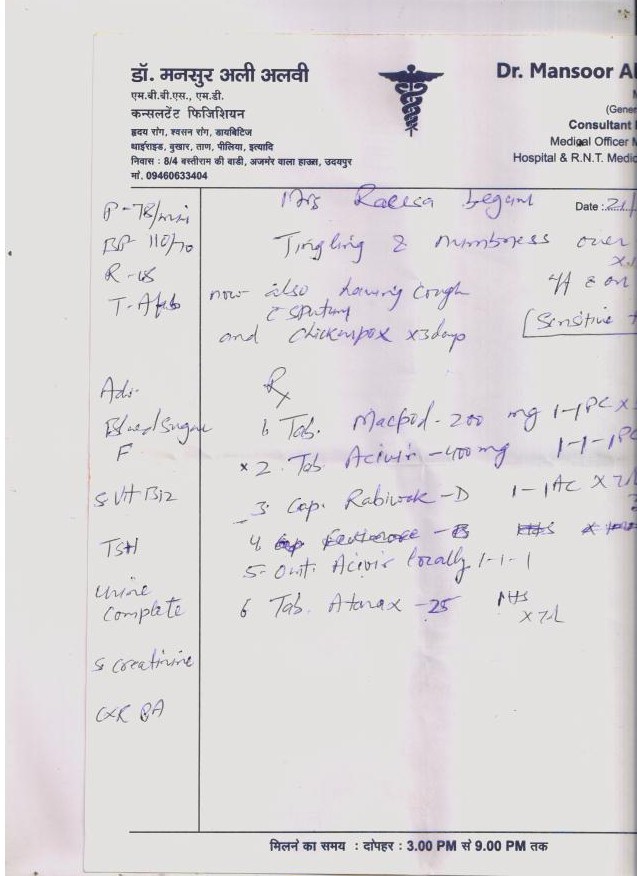 डॉ. मनसुर अली अलवी
एम.बी.बी.एस., एम.डी.
कन्सलटेंट फिजिशियन
हृदय रोग, श्वसन रोग, डायबिटिज
थाईराईड, बुखार, ताण, पीलिया, इत्यादि
निवास : 8/4 बस्तीराम की बाडी, अजमेर वाला हाऊस, उदयपुर
मो. 09460633404
Dr. Mansoor Al
M
(Gener
Consultant
Medical Officer M
Hospital & R.N.T. Medic
Mrs Raeesa begam
Date : 21/
P-78/min
BP 110/70
R-18
T-Afeb
Tingling & numbness over
now also having cough
c sputum
and chickenpox x3days
[Sensitive
Adv.
Blood Sugar
F
S. Vit B12
TSH
Urine
Complete
S. Creatinine
CXR PA
Rx
1. Tab. Macpod-200 mg 1-1 PC x
x 2. Tab Acivir-400mg 1-1-1 PC
3. Cap. Rabiwok-D 1-1 AC x 7d
4
5. Oint. Acivir locally 1-1-1
6 Tab. Atarax-25 HS
x 7d
मिलने का समय : दोपहर : 3.00 PM से 9.00 PM तक